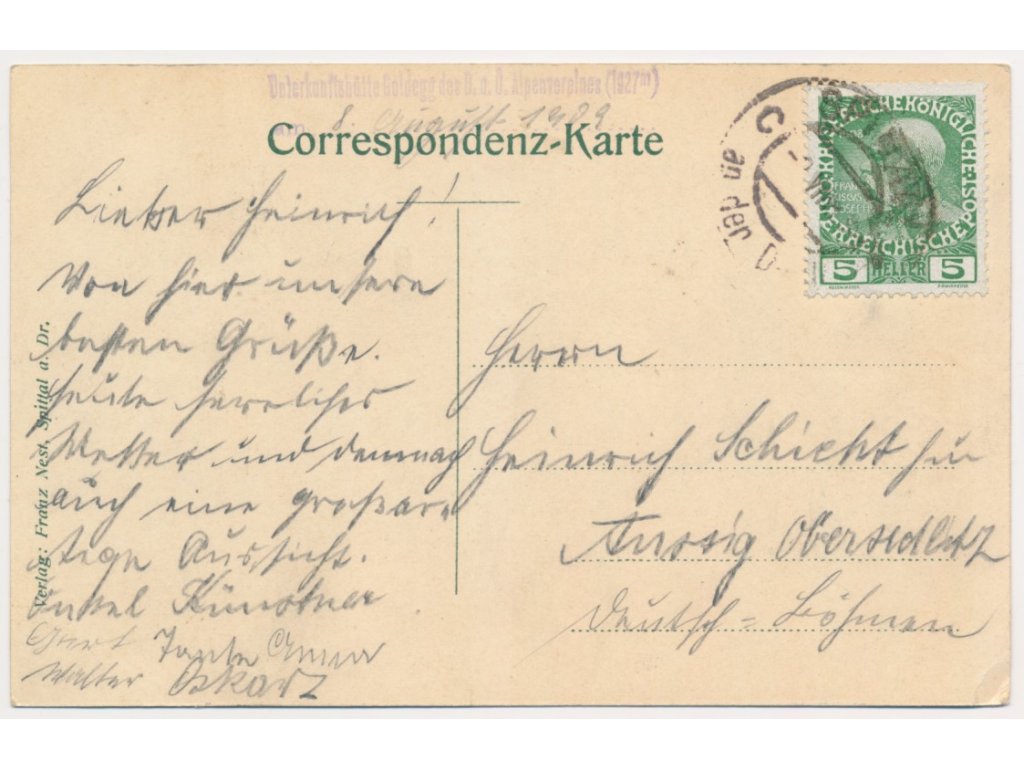 Unterkunftshütte Goldegg des D. u. Ö. Alpenvereines (1927m)
am 8. August 1909
Correspondenz-Karte
Lieber Heinrich!
Von hier unsere
besten Grüße.
Heute herrliches
Wetter und demnach
auch eine großar-
tige Aussicht.
Onkel Künstner
Tante Anna
Walter Oskar
Verlag: Franz Nest, Spittal a. Dr.
ÖSTERREICHISCHE POST
5 HELLER 5
an der D
Herrn
Heinrich Schicht jun
Aussig Obersedlitz
Deutsch=Böhmen